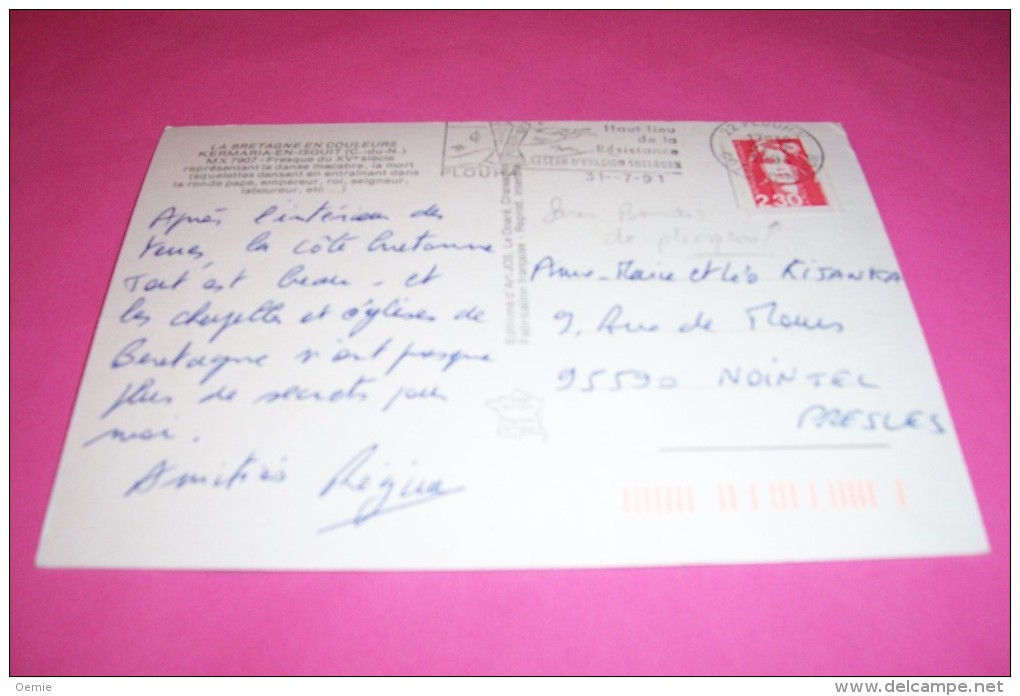 LA BRETAGNE EN COULEURS
KERMARIA-EN-ISQUIT (C.-du-N.)
MX 7907 - Fresque du XVe siècle
représentant la danse macabre, la mort
et squelettes dansant en entraînant dans
la ronde pape, empereur, roi, seigneur,
laboureur, etc ...
Après l'intérieur des
terres, la côte bretonne
Tout est beau - et
les chapelles et églises de
Bretagne n'ont presque
plus de secrets pour
moi.
Amitiés Régina
Editions d'Art JOS Le Doaré, Chateaulin
Fabrication française - Reprod. interdite
PLOUHA
Haut lieu
de la
Résistance
31-7-91
22 PLOUHA
2,30
Sans Bandes
de phospho
Anne-Marie et Léo KIJANKA
9, Rue de Mours
95590 NOINTEL
PRESLES
Oemie
delcampe.net